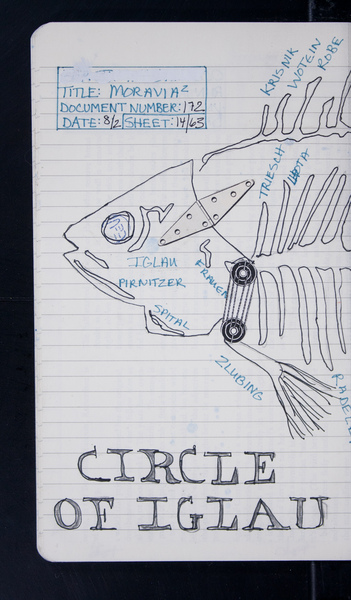 TITLE: MORAVIA²
DOCUMENT NUMBER: 172
DATE: 8/2 SHEET: 14/63
KRISNIK
WOTEIN
ROBE
TRIESCH
IGLAU
PIRNITZER
FRAUEN
SPITAL
ZLUBING
CIRCLE
OF IGLAU